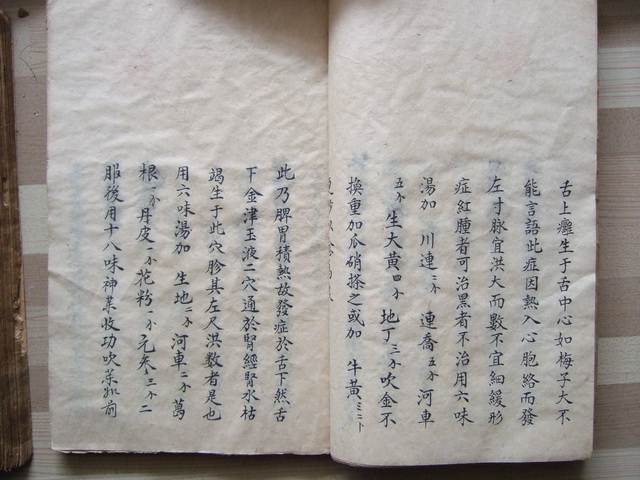 舌上癰生于舌中心如梅子大不
能言語此症因熱入心胞絡而發
左寸脉宜洪大而數不宜細緩形
症紅腫者可治黑者不治用六味
湯加 川連二分 連喬五分 河車
五分 生大黃四分 地丁三分 吹金不
換重加瓜硝搽之或加 牛黃
此乃脾胃積熱故發症於舌下然舌
下金津玉液二穴通於腎經腎水枯
竭生于此穴胗其左尺洪数者是也
用六味湯加 生地二分 河車二分 萬
根一分 丹皮一分 花粉一分 元参三分 二
服後用十八味神藥收功吹藥如前